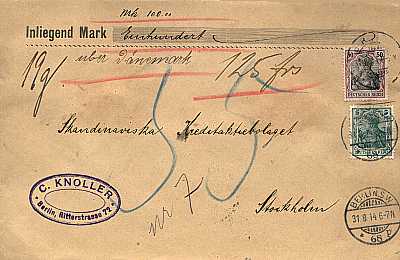 Mk 100.__
Inliegend Mark Einhundert
über Dänemark
19g 125 frs
50
DEUTSCHES REICH
5
Skandinaviska Kreditaktiebolaget
55
C. KNOLLER
Berlin, Ritterstrasse 72.
nr 7
Stockholm
BERLIN S.W.
31.8.14.6-7N
* 68 c